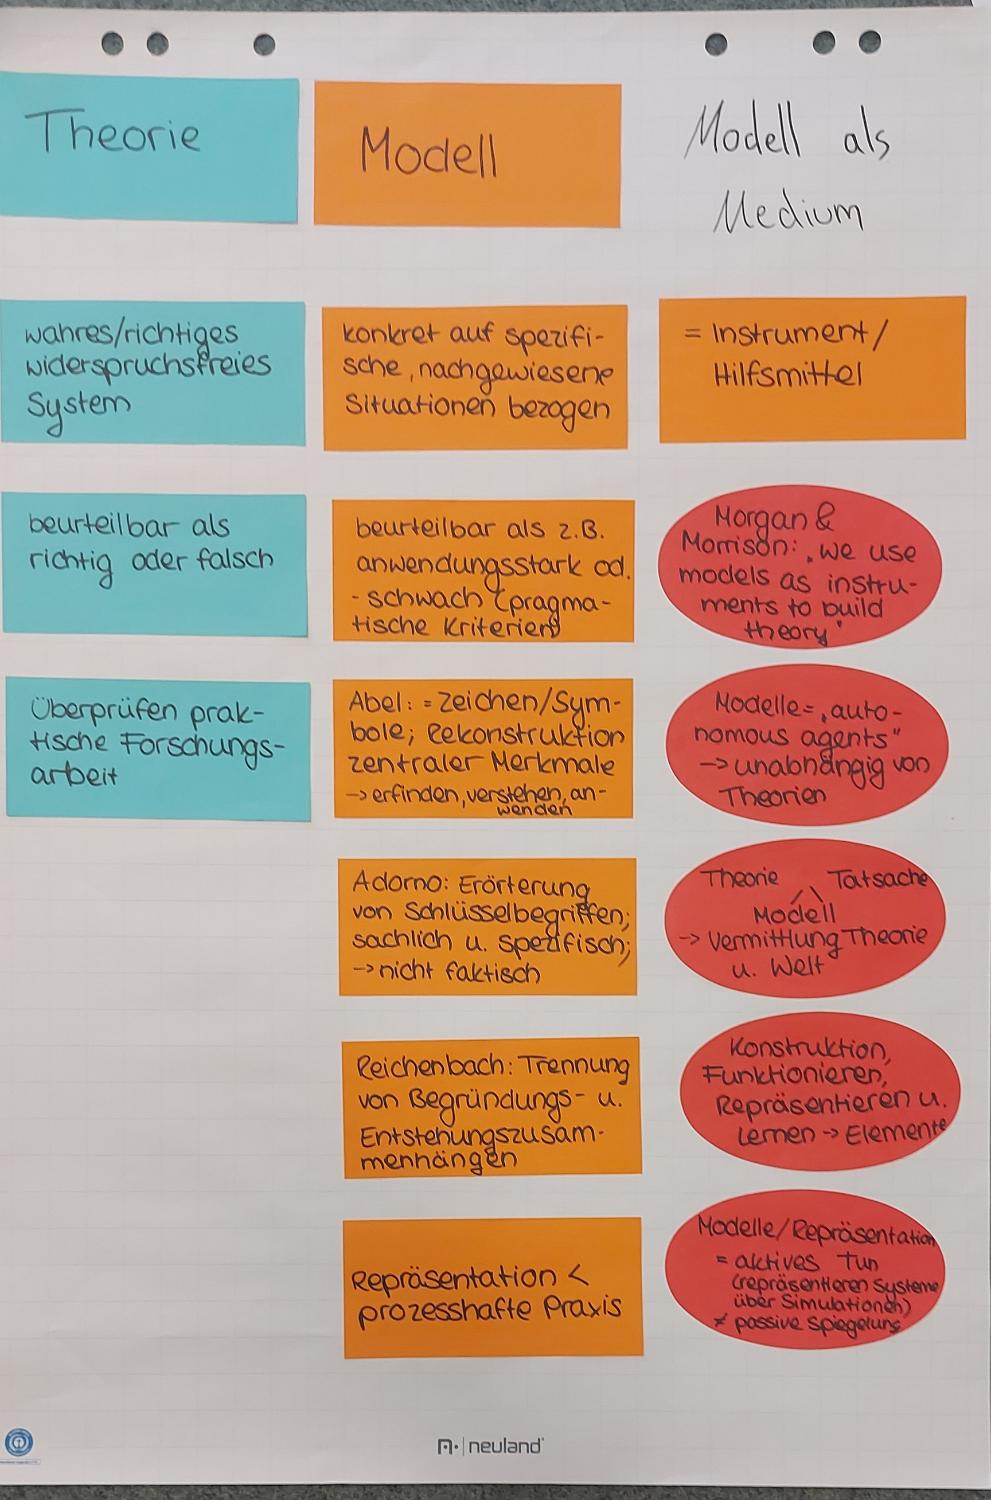 Theorie
wahres/richtiges
widerspruchsfreies
System
beurteilbar als
richtig oder falsch
Überprüfen prak-
tische Forschungs-
arbeit
Modell
konkret auf spezifi-
sche, nachgewiesene
Situationen bezogen
beurteilbar als z.B.
anwendungsstark od.
- schwach (pragma-
tische Kriterien)
Abel: = Zeichen/Sym-
bole; Rekonstruktion
zentraler Merkmale
-> erfinden, verstehen, an-
wenden
Adorno: Erörterung
von Schlüsselbegriffen;
sachlich u. spezifisch;
-> nicht faktisch
Reichenbach: Trennung
von Begründungs- u.
Entstehungszusam-
menhängen
Repräsentation <
prozesshafte Praxis
Modell als
Medium
= Instrument/
Hilfsmittel
Morgan &
Morrison: „we use
models as instru-
ments to build
theory"
Modelle= „auto-
nomous agents"
-> unabhängig von
Theorien
Theorie Tatsache
Modell
-> Vermittlung Theorie
u. Welt
Konstruktion,
Funktionieren,
Repräsentieren u.
Lernen -> Elemente
Modelle/Repräsentation
= aktives Tun
(repräsentieren Systeme
über Simulationen)
≠ passive Spiegelung
neuland